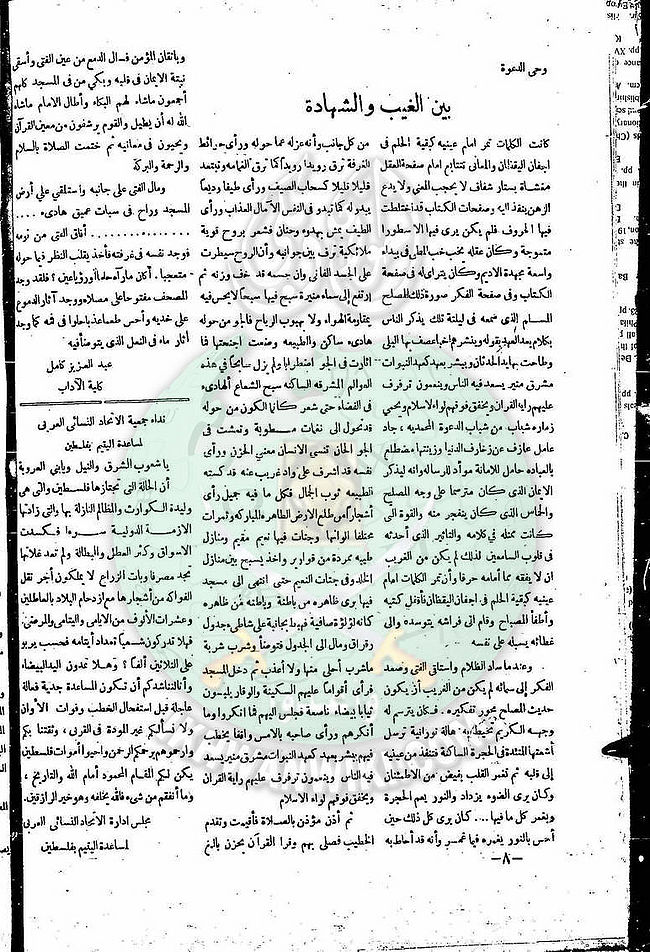 وحى الدعوة
بين الغيب والشهادة
كانت الكلمات تمر امام عينيه كبقية الحلم فى
اجفان اليقظان والمعانى تتتابع امام صفحة العقل
مغشاة بستار شفاف لا يحجب المعنى ولا يدع
الزهن ينفذ اليه وصفحات الكتاب قد اختلطت
فيها الحروف فلم يكن يرى فيها الا سطورا
متموجة وكان عقله مخب خب المطى فى بيداء
واسعة بعيدة الاديم وكان يتراءى له فى صفحة
الكتاب وفى صفحة الفكر صورة ذلك المصلح
المسلم الذى سمعه فى ليلتة تلك يذكر الناس
بكلام بعد العهد بقوله وينشر
وطاحت بها يد المدنيان ويبشر بعهد كعهد النبوات
مشرق منير يسعد فيه الناس وينعمون ترفرف
عليهم راية القران ويخفق فوقهم لواء الاسلام ويحيى
زماره شباب من شباب الدعوة المحمدية ، جاد
عامل عازف عن زخارف الدنيا وزينتها مضطلم
بالعباده حامل للامانة مؤاد للرساله وانه ليذكر
الايمان الذى كان مترسما على وجه المصلح
والحماس الذى كان ينفجر منه والقوة التى
كانت ممثله فى كلامه والتاثير الذى أحدثه
فى قلوب السامعين لذلك لم يكن من الغريب
ان لا يفقه مما أمامه حرفا وأن تمر الكلمات امام
عينيه كبقية الحلم فى اجفان اليقظان فأقفل كتبه
وأطفأ المصباح وقام الى فراشه يتوسده والى
غطائه يسبله على نفسه
وعند ما ساد الظلام واستلقى الفتى وصعد
الفكر إلى سمائه لم يكن من الغريب أن يكون
حديث المصلح محور تفكيره . فكان يترسم له
وجهه الكريم تحيط به هالة نورانية ترسل
أشعتها المتئدة فى الحجرة الساكنة فتنفذ من عينيه
إلى قلبه ثم تغمر القلب بفيض من الاطمئنان
وكان يرى الضوء يزداد والنور يعم الحجرة
ويغمر كل ما فيها .... كان يرى كل ذلك حين
أحس بالنور يغمره فيما غمر وأنه قد أحاط به
من كل جانب وأنه عزله عما حوله ورأى حوائط
الغرفة ترق رويدا رويدا كما ترق الغمامه وتبتعد
قليلا قليلا كسحاب الصيف ورأى طيفا وديعا
يبدو له كما تبدو فى النفس الآمال العذاب ورأى
الطيف يمس بهدوء وحنان فشعر بروح قوية
ملائكية ترف بين جوانبه وأن الروح سيطرت
على الجسد الفانى وان جسمه قد خف وزنه ثم
ارتفع إلى سماء منيرة سبح فيها سبحا لا يحس فيه
بمقاومة الهواء ولا بهبوب الرياح فالجو من حوله
هادىء ساكن والطبيعه وضعت اجنحتها فما
اثارت فى الجو اضطرابا ولم يزل سابحا فى هذه
العوالم المشرقه الساكنه سبح الشعاع الهادىء
فى الفضاء حتى شعر كانما الكون من حوله
قد تحول الى نغمات مسطوبة وتمشت فى
الجو الحان تنسى الانسان معني الحزن ورأى
نفسه قد اشرف على واد غريب عنه قد كسته
الطبيعه ثوب الجمال فكل ما فيه جميل رأى
أشجارا من طلع الارض الطاهره المباركه وثمرات
مختلفا الوانها وجنات فيها نعيم مقيم ومنازل
طيبه ممردة من قوارير واخذ يسبح بين منازل
الخلد وفى جنات النعيم حتى انتهى الى مسجد
فيها يرى ظاهره من باطنه وباطنه من ظاهره
كانه لؤلؤة صافية فهبط بجانبه على شاطىء جدول
رقراق ومال الى الجدول فتوضأ وشرب شربة
ماشرب أحلى منها ولا أعذب ثم دخل المسجد
فرأى أقواما عليهم السكينة والوقار يلبسون
ثيابا بيضاء ناصعة فجلس اليهم فما انكروا وما
أنكرهم ورأى صاحبه بالامس واقفا يخطب
فيهم يبشر بعهد كعهد النبوات مشرق منير يسعد
فيه الناس وينعمون ترفرف عليهم راية القران
ويخفق فوقهم لواء الاسلام
ثم أذن مؤذن بالصلاة فأقيمت وتقدم
الخطيب فصلى بهم وقرا القرآن بحزن بالغ
وباتقان المؤمن فسال الدمع من عين الفتى وأسقى
نبتة الايمان فى قلبه وبكى من فى المسجد كلهم
أجمعون ماشاء لهم البكاء وأطال الامام ماشاء
الله له أن يطيل والقوم يرشفون من معين القرآن
ويحيون فى معانيه ثم ختمت الصلاة بالسلام
والرحمة والبركة
ومال الفتى على جانبه واستلقى على أرض
المسجد وراح فى سبات عميق هادىء ....
................ أفاق الفتى من نومه
فوجد نفسه فى غرفته فأخذ يقلب النظر فيما حوله
متعجبا . أكان مارآه حلما أو رؤيا عين ؟ فلقد وجد
المصحف مفتوحا على مصلاه ووجد آثار الدموع
على خديه وأحس طعما عذبا حلوا فى فمه كما وجد
آثار ماء فى النعل الذى يتوضأ فيه
عبد العزيز كامل
كلية الآداب
نداء جمعية الاتحاد النسائى العربى
لمساعدة اليتيم بفلسطين
يا شعوب الشرق والنيل ويابنى العروبة
أن الحالة التى تجتازها فلسطين والتى هى
وليدة الكوارث والمظالم النازلة بها والتى زادتها
الازمة الدولية سوءا فكسدت
الاسواق وكثر العطل والبطالة ولم تعد غلاتها
تجد مصرفا وبات الزراع لا يملكون أجر نقل
الفواكه من أشجارها مع ازدحام البلاد بالعاطلين
وعشرات الألوف من الايامى واليتامى والمرضى
فهلا تدركون شعبا تعداد أيتامه فحسب يربو
على الثلاثين ألفا ؟ وهلا تمدون اليد البيضاء
وأنا لنناشدكم أن تسكون المساعدة جدية فعالة
عاجلة قبل استفحال الخطب وفوات الأوان
ولا نسألكم غير المودة فى القربى ، وثقتنا بكم
وارحموهم يرحمكم الرحمن وأحيوا أموات فلسطين
يكن لكم المقام المحمود أمام الله والتاريخ ،
وما أنفقتم من شىء فالله يخلفه وهو خير الرازقين.
مجلس ادارة الاتحاد النسائى العربى
لمساعدة اليتيم بفلسطين
—٨—